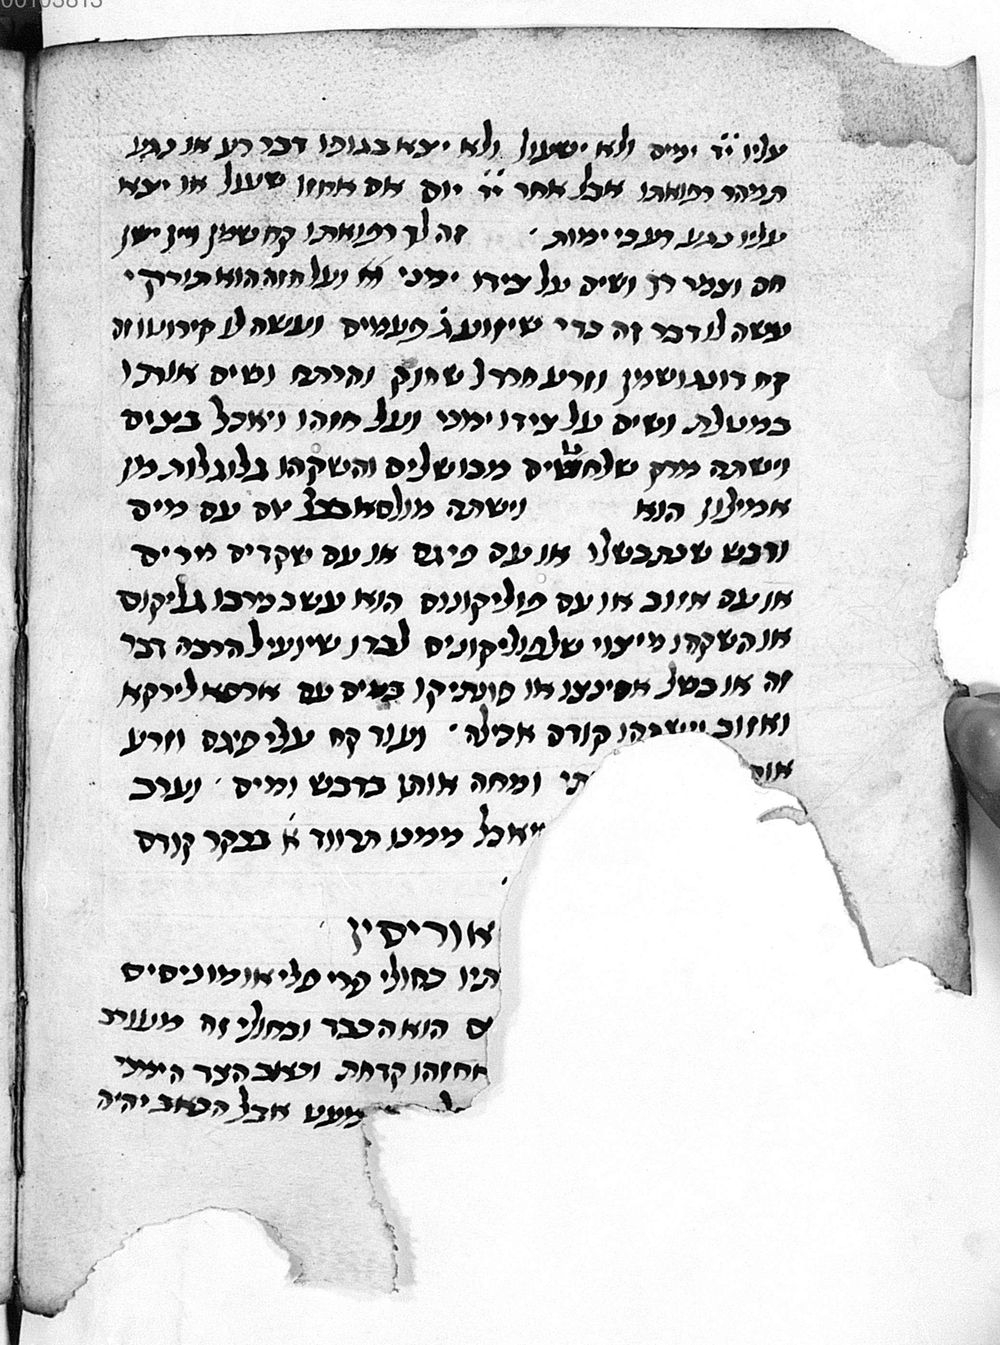 עליו י̈ד ימים ולא ישעול ולא יצא בגופו דבר רע או נגע
תמהר רפואתו אבל אחר י̈ד יום אם אחזו שעול או יצא
עליו נגע רע כי ימות זה לך רפואתו קח שמן ויין ישן
חם וצמר רך ושים על צידו ימני א ועל חזהו הוא תורקי
עשה לו דבר זה כדי שיזוע ג פעמים ועשה לו קירוטו זה
קח דונג ושמן וזרע חרדל שחוק והרתח ושים אותו
במטלת ושים על צידו ימני ועל חזהו ויאכל בצים
וישתה מרק שלחטים מבושלים והשקהו גלוגלות מן
אמילון הוא וישתה מולסא עם מים
ודבש שנתבשלו או עם פיגם או עם שקדים מרים
או עם אזוב או עם פוליקונוס הוא עשב
או השקהו מיצוי שלפוליקונים לבדו שיועיל הרבה דבר
זה או בשל אפסינצו או פונתיקו במים עם
ואזוב קודם אכילה ועוד קח עלי פיגם וזרע
ומחה אותן בדבש ומים וערב
יאכל ממנו תרווד א בבקר קודם
אוריסין
כחולי פרי
הוא הכבד וכחולי זה מעורב
אחזהו קדחת וכאב הצד הימני
מעט אבל הכאב יהיה
00103813